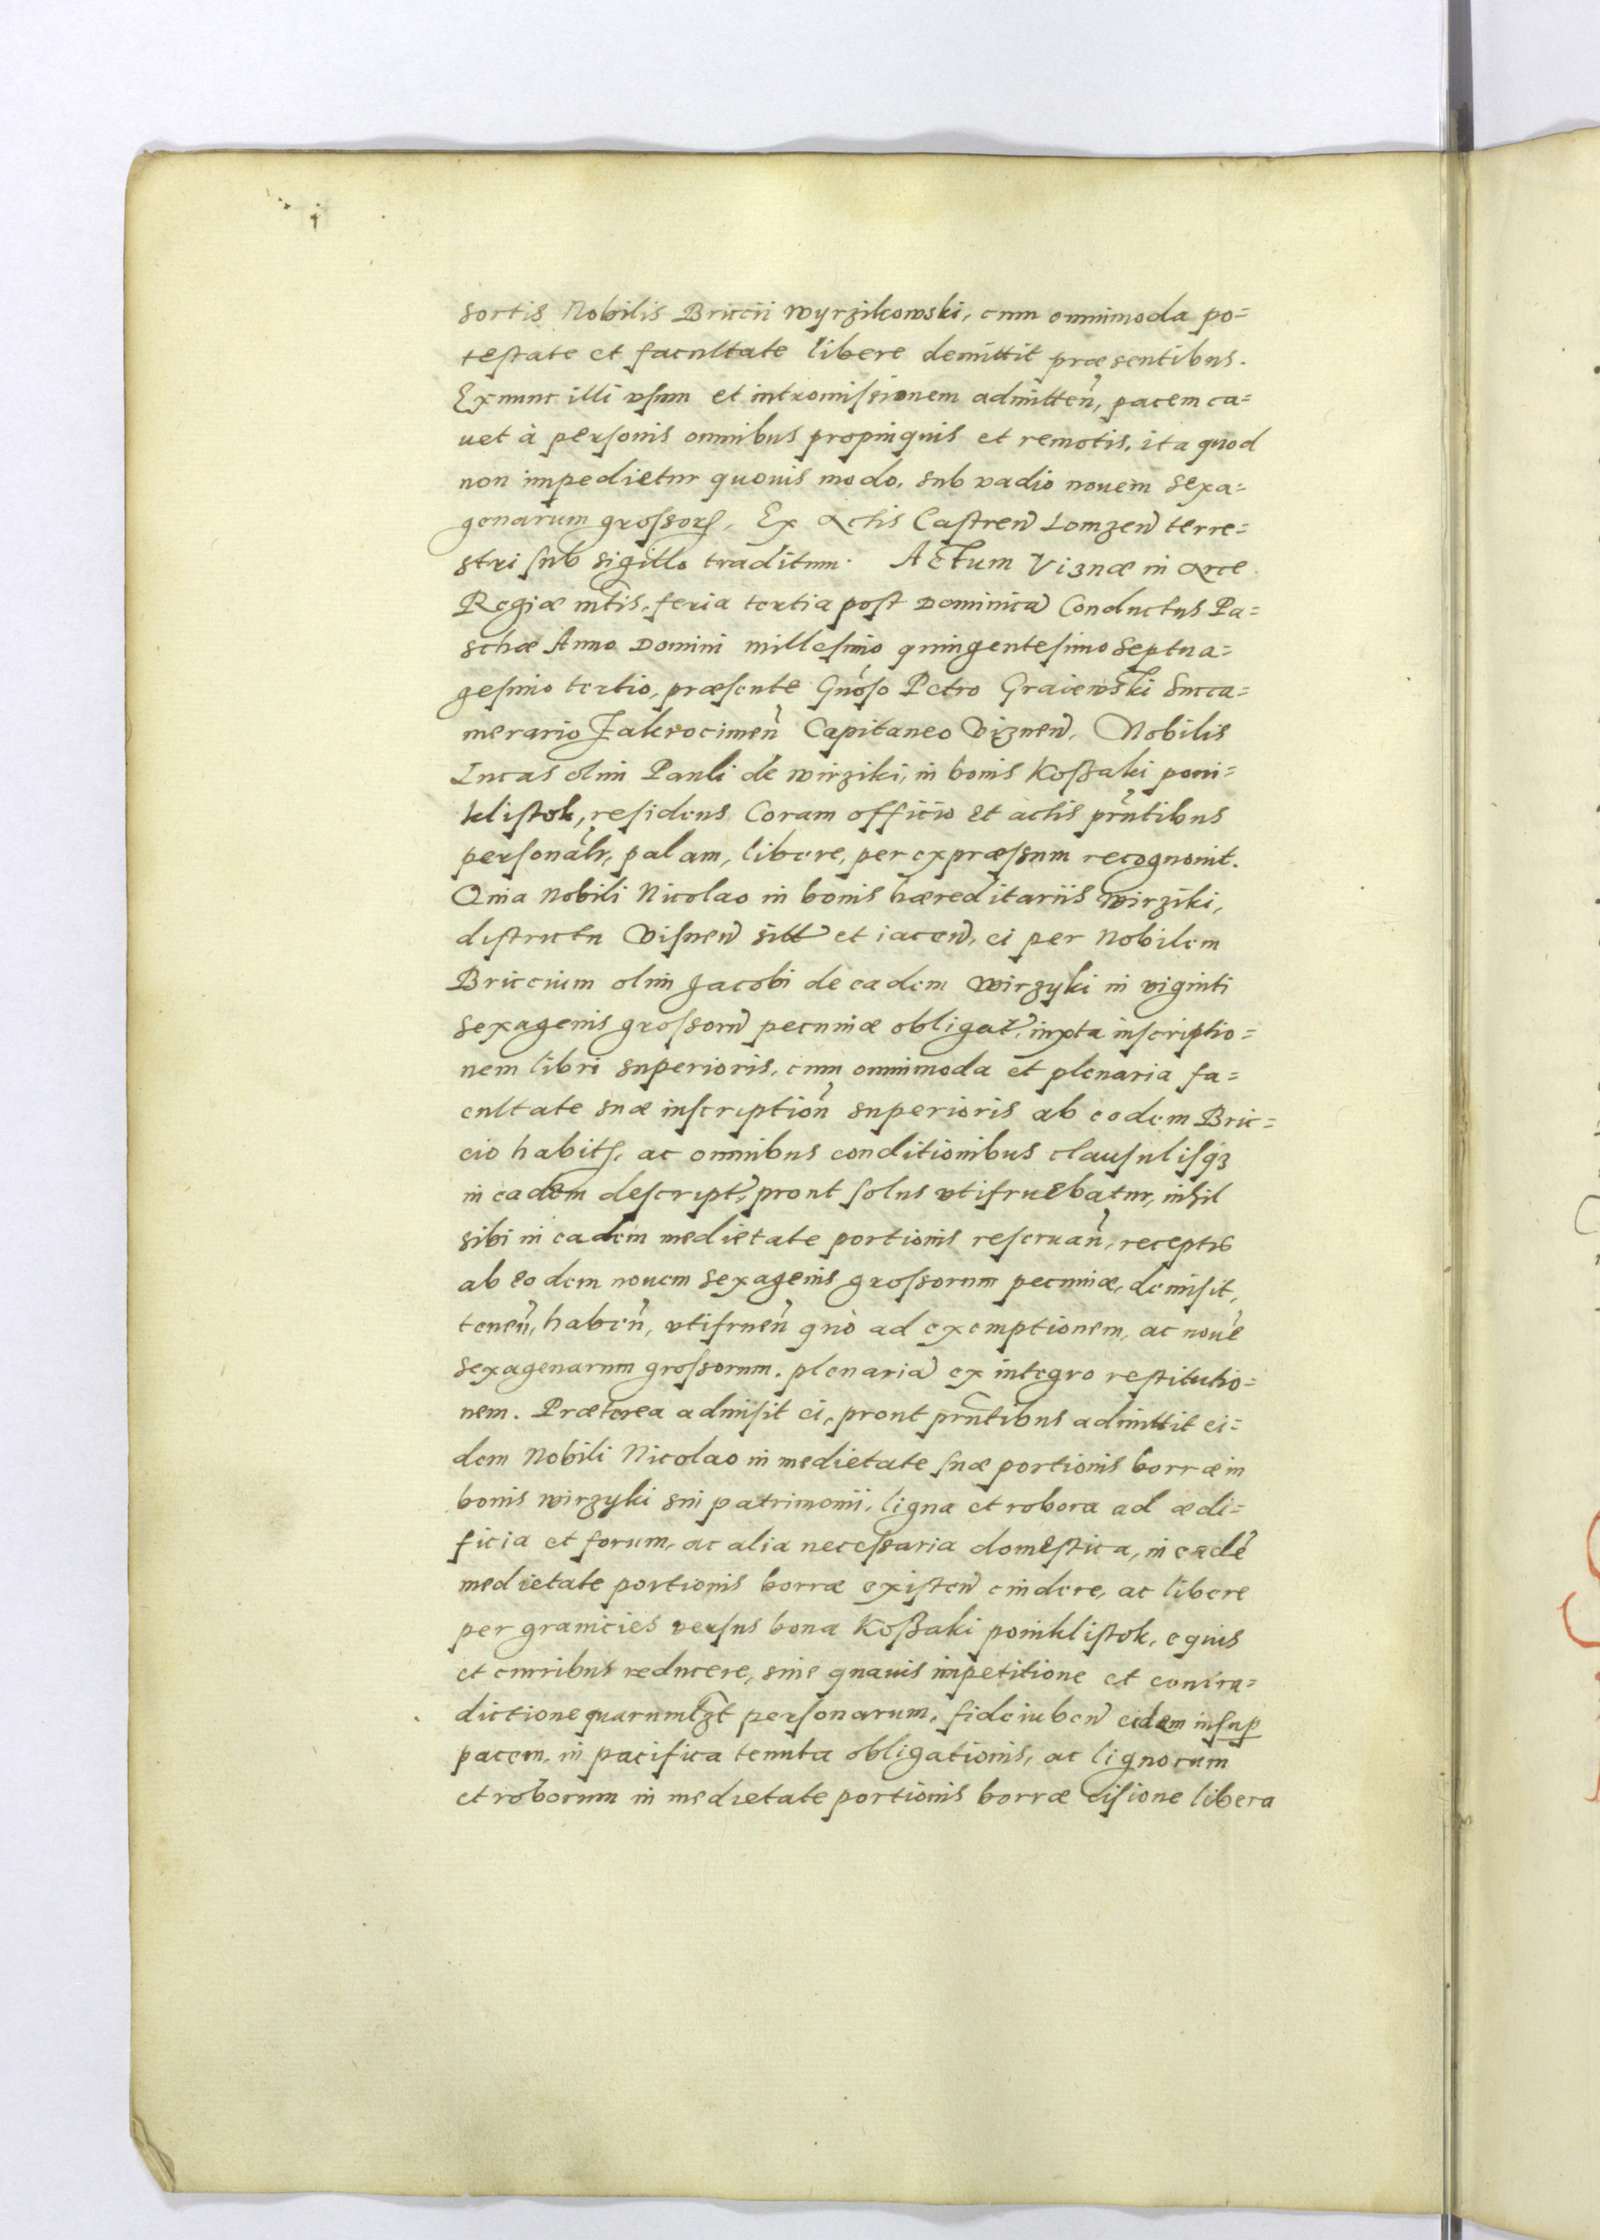 sortis Nobilis Briccii Wyrzikowski, cum omnimoda po=
testate et facultate libere demittit præsentibus.
Ex nunc illi vsum et intromissionem admitten̄, pacem ca=
uet à personis omnibus propinquis et remotis, ita quod
non impedietur quouis modo, sub vadio nouem sexa=
genarum grossorꝭ, Ex Actis Castren̄ Lomzen̄ terre=
stri sub sigillo traditum. Actum Viznæ in Arce
Regiæ mtis, feria tertia post Dominicā Conductus Pa=
schæ Anno Domini millesimo quingentesimo septua=
gesimo tertio, præsente Gnoso Petro Graiewski Succa=
merario Zakrocimen̄ Capitaneo Viznen̄, Nobilis
Lucas olim Pauli de wirziki, in bonis Koßaki poni=
klistok, residens Coram officio et actis pr̄ntibus
personalr, palam, libere, per expræssum recognouit.
Quia Nobili Nicolao in bonis hæreditariis Wirziki,
districtu Visnen̄ sitt et iacen̄, ei per Nobilem
Briccium olim Jacobi de eadem Wirzyki in viginti
sexagenis grossorū pecuniæ obligat, iuxta inscriptio=
nem libri superioris, cum omnimoda et plenaria fa=
cultate suæ inscription̄ superioris ab eodem Bric=
cio habitꝭ, ac omnibus conditionibus clausulisqꝫ
in eadem descript, prout solus vtifruebatur, nihil
sibi in eadem medietate portionis reseruan̄, receptis
ab eodem nouem sexagenis grossorum pecuniæ, demisit,
tenen̄, haben̄, vtifruen̄ q̄uò ad exemptionem, ac nouē
sexagenarum grossorum. plenariā ex integro restitutio=
nem. Præterea admisit ei, prout pr̄ntibus admittit ei=
dem Nobili Nicolao in medietate suæ portionis borræ in
bonis wirzyki sui patrimonii, ligna et robora ad ædi=
ficia et forum, ac alia necessaria domestica, in eadē
medietate portionis borræ existen̄ cindere, ac libere
per granicies versus bona Koßaki poniklistok, equis
et curribus reducere, sine quauis impetitione et contra=
dictione quarumlꝫt personarum, fideiuben̄ eidem insuꝑ
pacem, in pacifica tenuta obligationis, ac lignorum
et roborum in medietate portionis borræ cisione libera